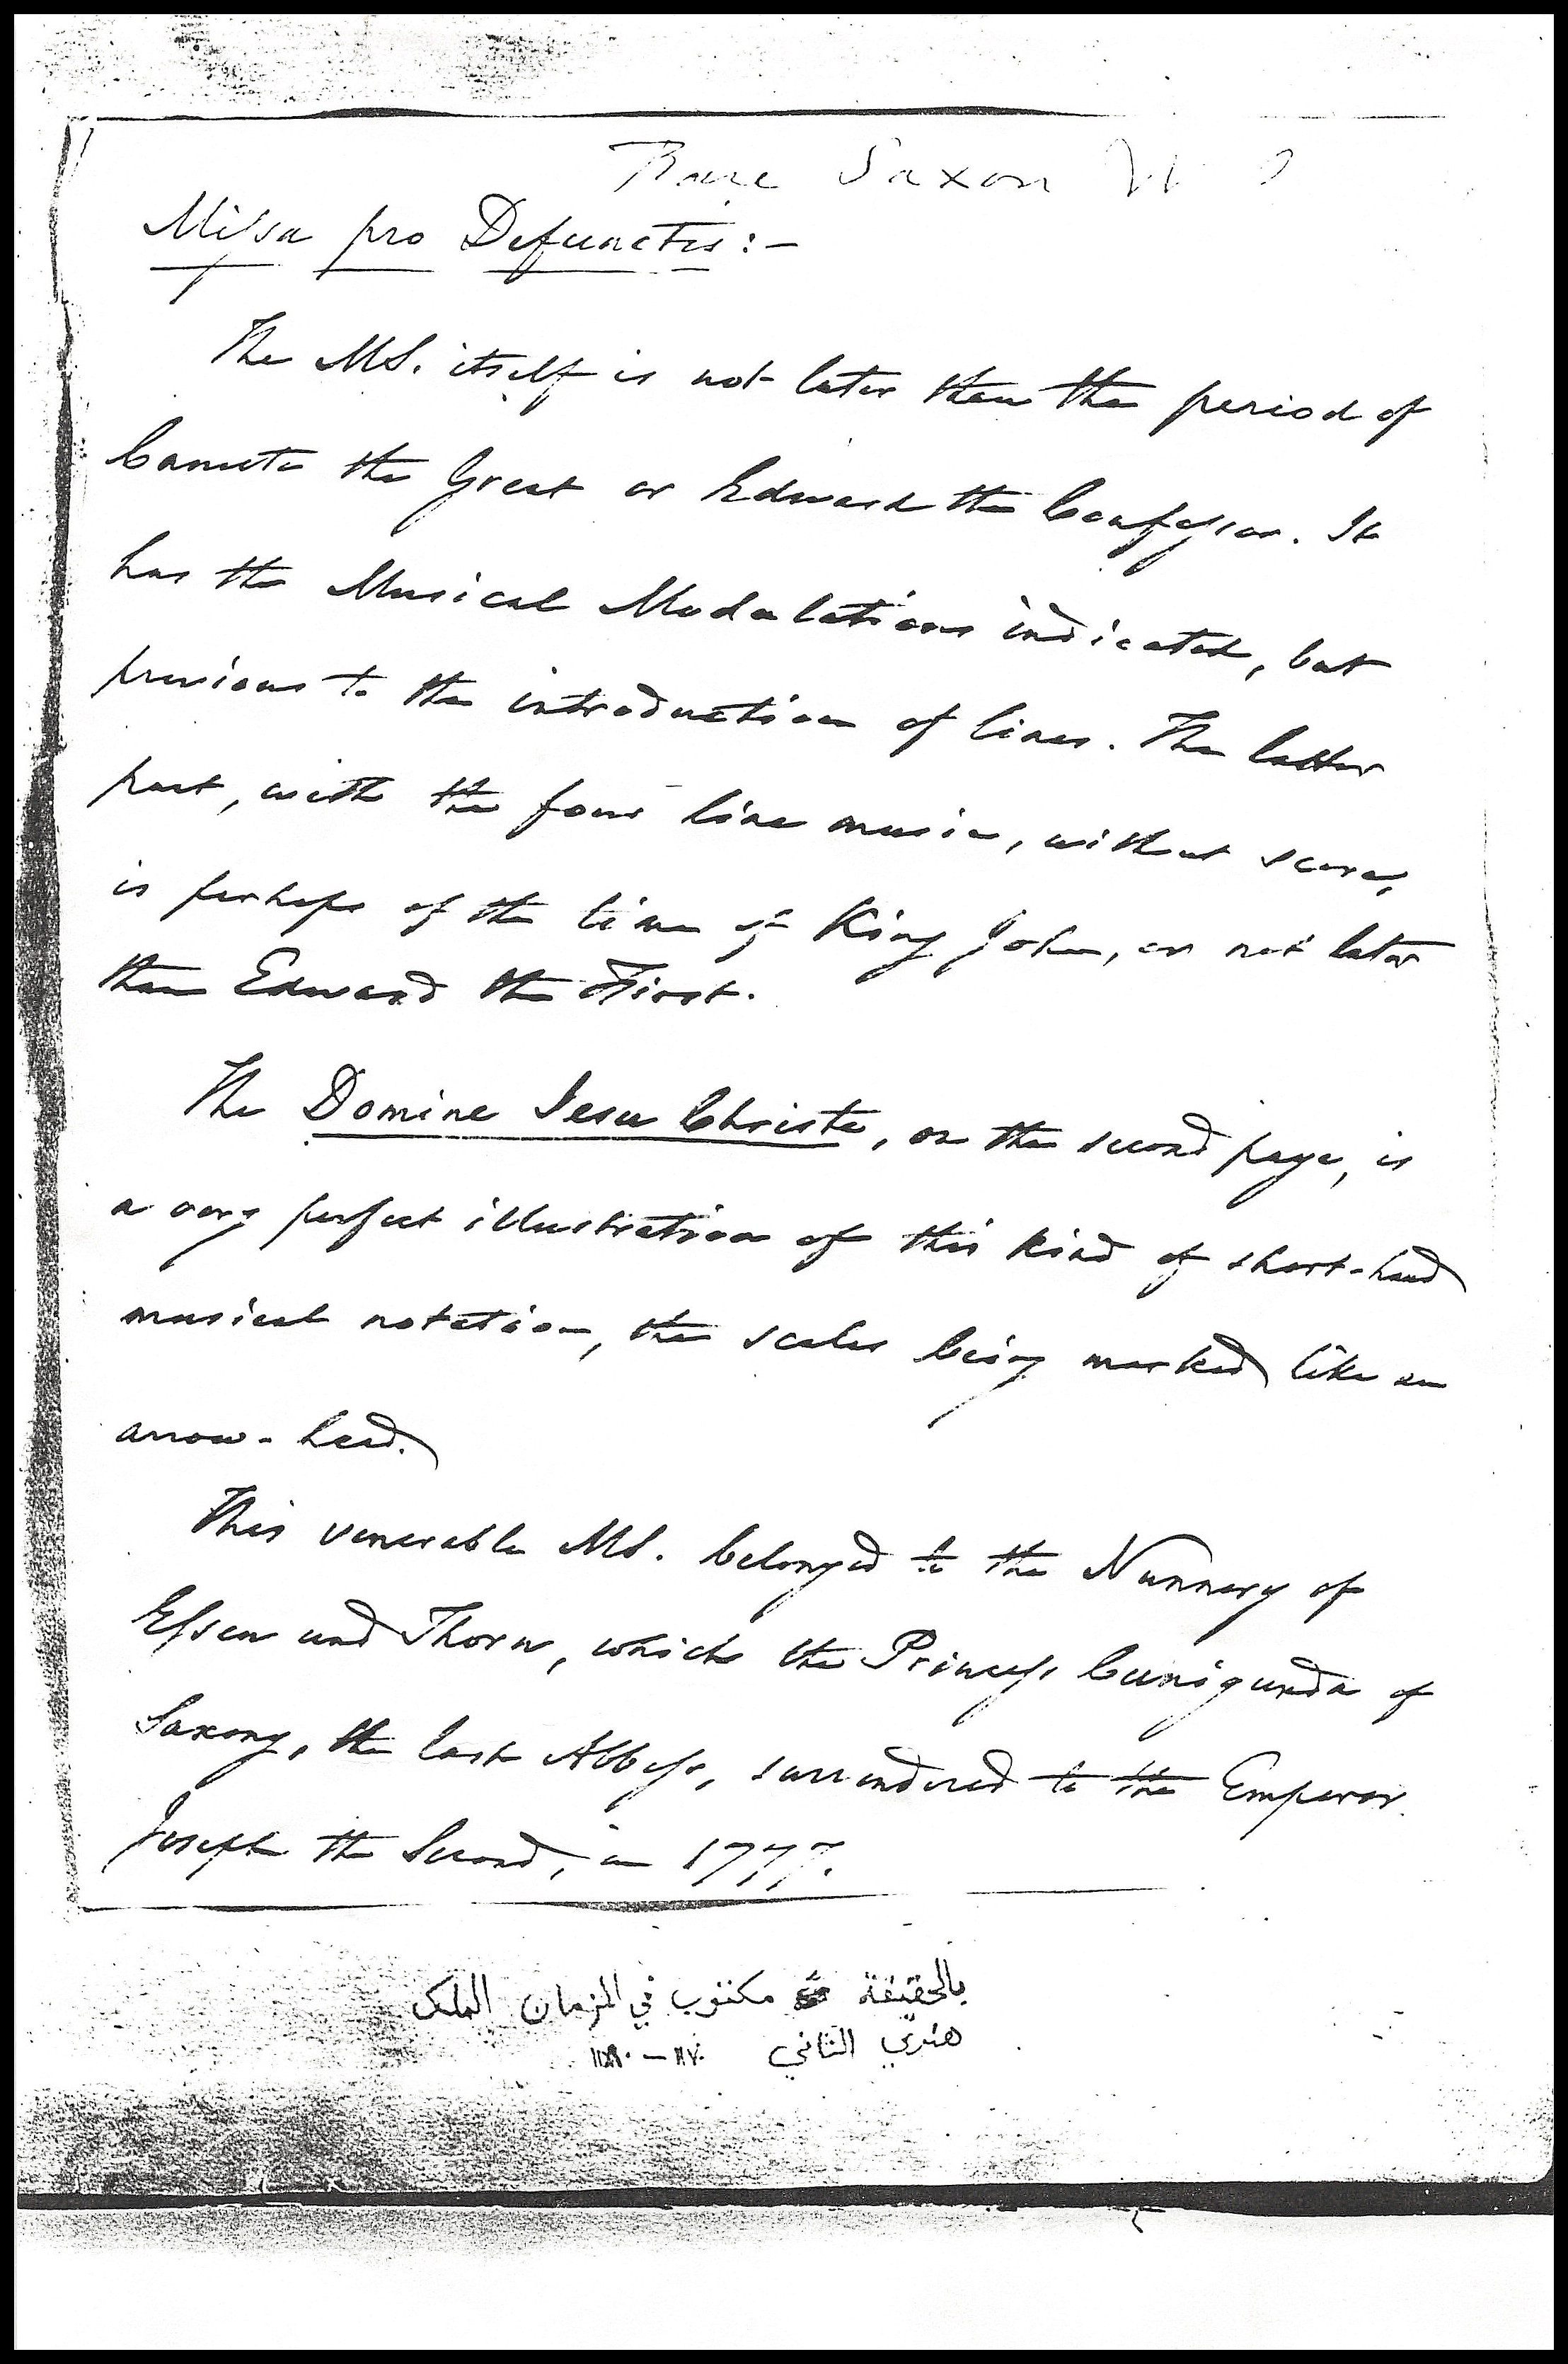 Rare Saxon
Missa pro Defunctis:-
The MS. itself is not later than the period of
Canute the Great or Edward the Confessor. It
has the Musical Modulations indicated, but
previous to the introduction of lines. The latter
part, with the four line music, without score,
is perhaps of the time of King John, or not later
than Edward the First.
The Domine Jesu Christe, on the second page, is
a very perfect illustration of this kind of short-hand
musical notation, the scales being marked like an
arrow-head.
This venerable MS. belonged to the Nunnery of
Essen und Thorn, which the Princess Cunigunda of
Saxony, the last Abbess, surrendered to the Emperor
Joseph the Second, in 1777.
بالحقيقة مكتوب في الزمان الملك
هنري الثاني